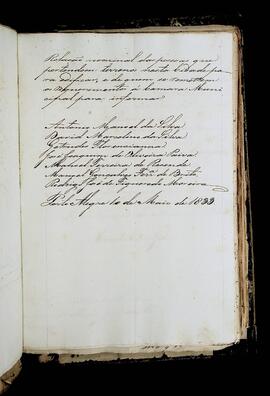 Relação nominal da pessoa que
pertendem terrenos nesta Cidade pa-
ra edificar, e de quem se remettem
os requerimentos á Camara Muni
cipal para informar
Antonio Manoel da Silva
David Marcelino da Silva
Gertrudes Florencianna
José Joaquim de Oliveira Paiva
Manoel Ferreira de Rezende
Manoel Gonçalves Ferrª de Brito
Rodrigo José de Figueredo Moreira
Porto Alegre 10 de Maio de 1833